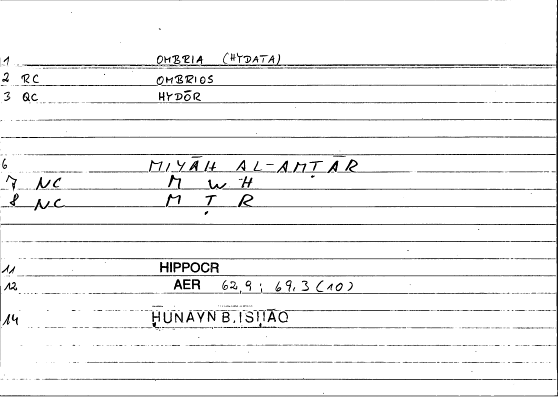 1 OMBRIA (HYDATA)
2 RC OMBRIOS
3 QC HYDŌR
6 MIYĀH AL-AMṬĀR
7 NC M W H
8 NC M Ṭ R
11 HIPPOCR
12 AER 62,9; 69,3 (10)
14 ḤUNAYN B. ISḤĀQ